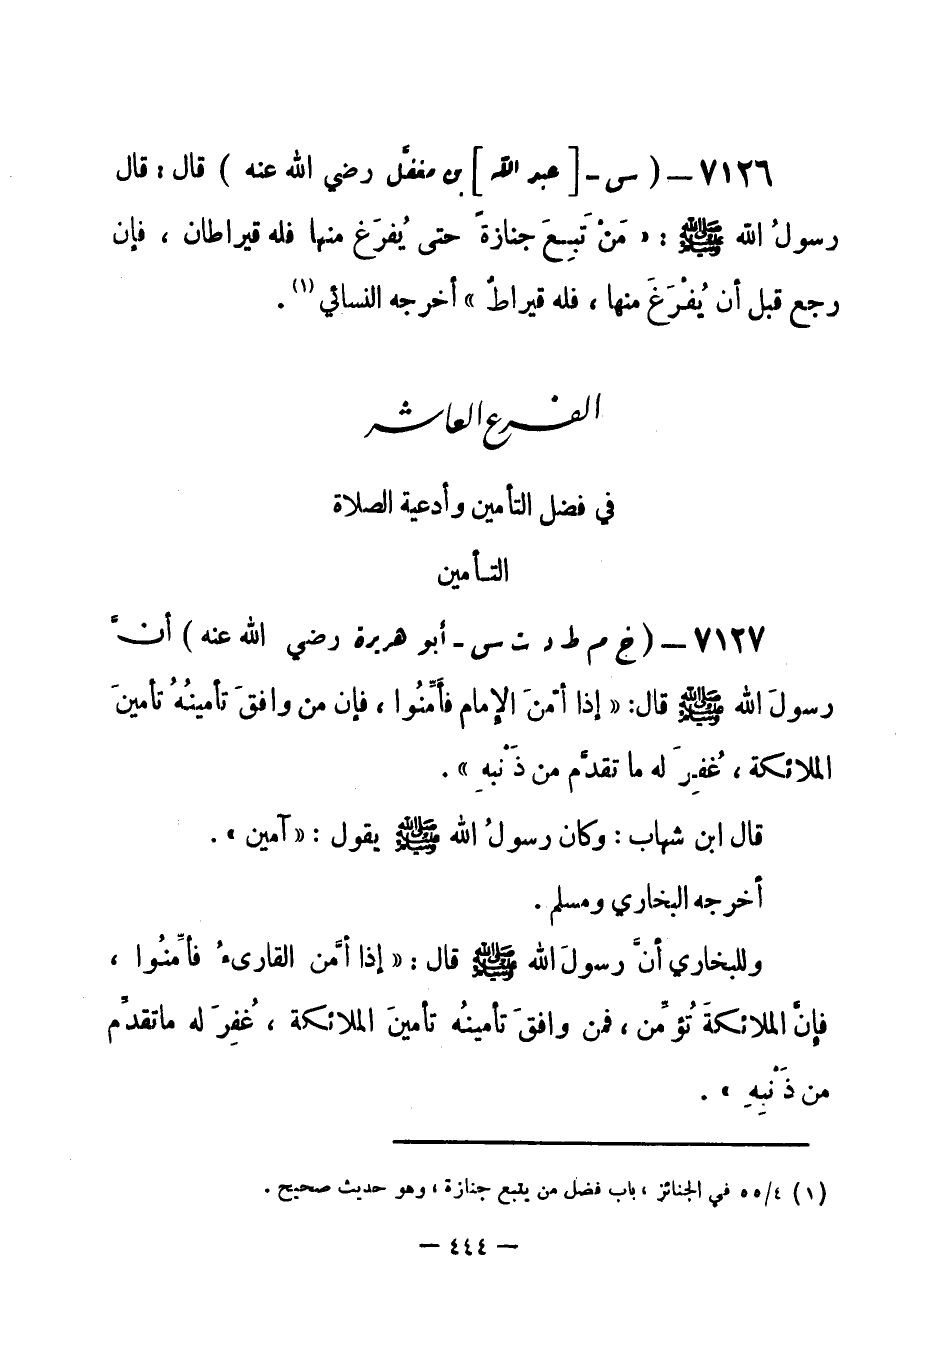 ٧١٢٦ – ( س - [ عبد الله ] بن مغفَّل رضي الله عنه ) قال : قال
رسولُ الله ﷺ : « مَنْ تَبِعَ جنازةً حتى يُفرَغ منها فله قيراطان ، فإن
رجع قبل أن يُفْرَغَ منها ، فله قيراطٌ » أخرجه النسائي (١) .
الفرع العاشر
في فضل التأمين وأدعية الصلاة
التـأمين
٧١٢٧ – ( خ م ط د ت س - أبو هريرة رضي الله عنه ) أنَّ
رسولَ الله ﷺ قال: « إذا أمَّنَ الإمام فأَمِّنُوا ، فإن من وافقَ تأمينُهُ تأمينَ
الملائكة ، غُفِرَ له ما تقدَّم من ذَنْبهِ » .
قال ابن شهاب : وكان رسولُ الله ﷺ يقول : « آمين » .
أخرجه البخاري ومسلم .
وللبخاري أنَّ رسولَ الله ﷺ قال : « إذا أمَّن القارىءُ فأمِّنُوا ،
فإنَّ الملائكةَ تُؤمِّن ، فمن وافقَ تأمينُه تأمينَ الملائكة ، غُفِرَ له ماتقدَّم
من ذَنْبِهِ » .
(١) ٤/ ٥٥ في الجنائز ، باب فضل من يتبع جنازة ، وهو حديث صحيح .
– ٤٤٤ –